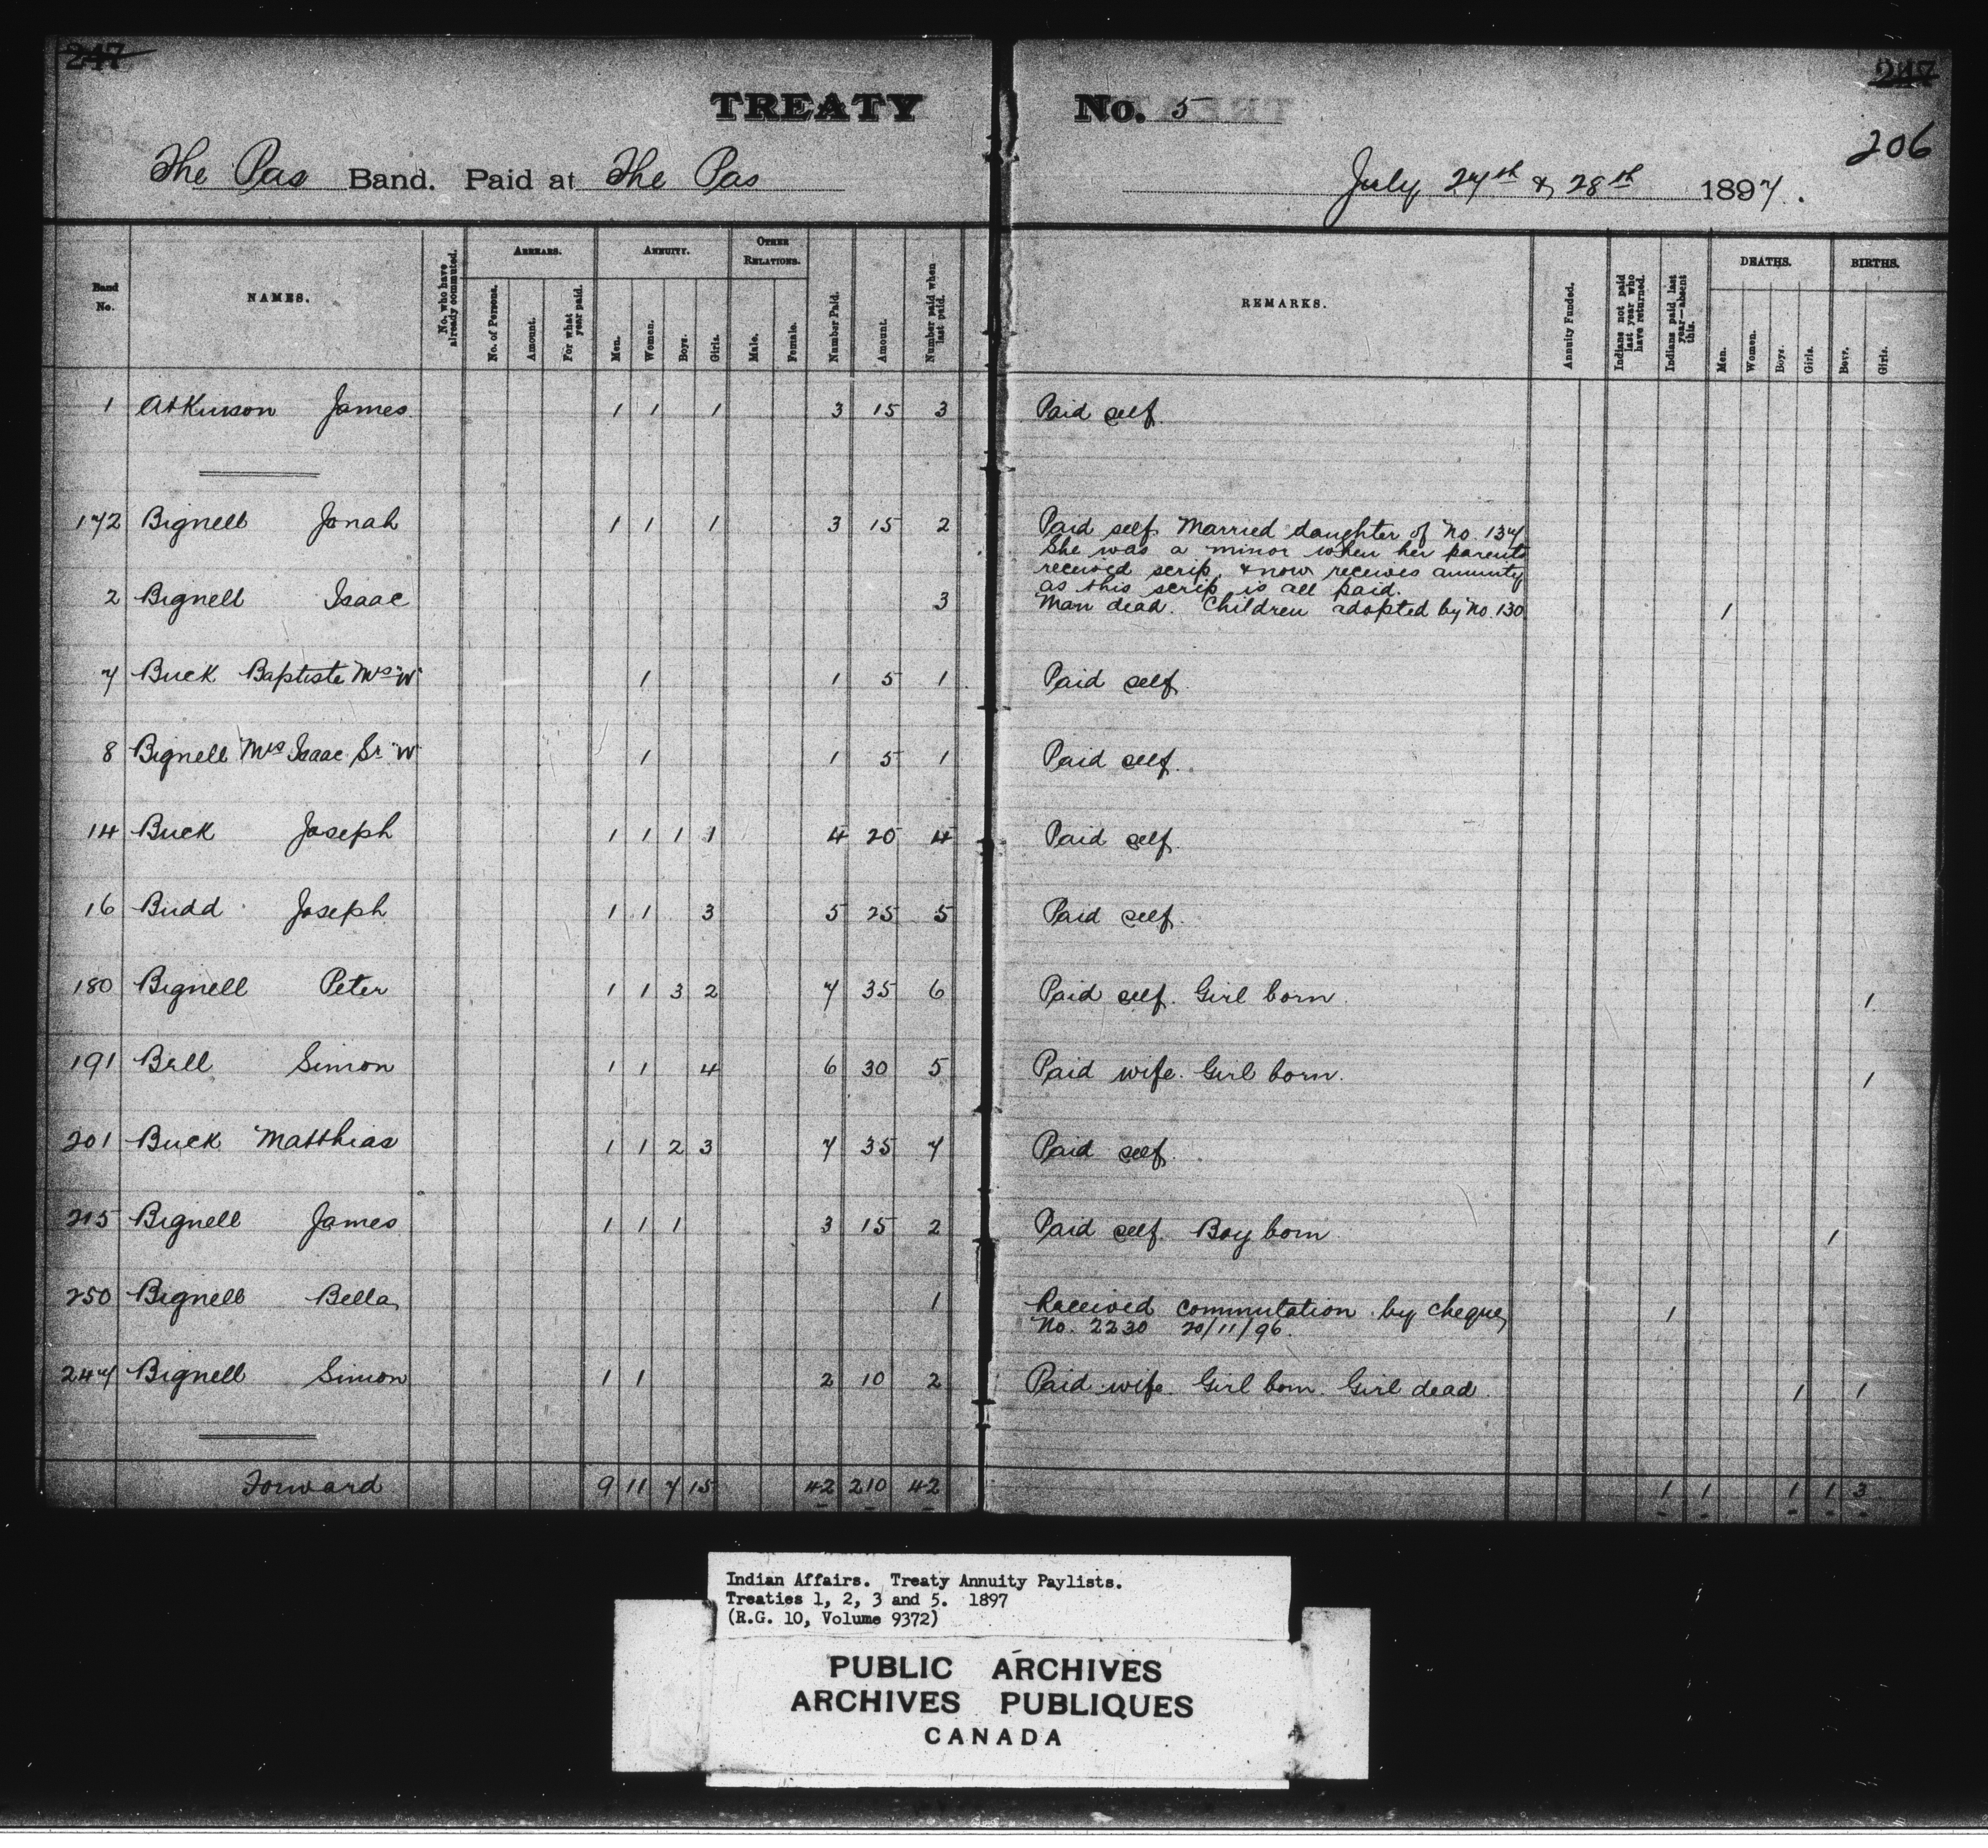 247 247
TREATY No. 5
206
The Pas Band. Paid at The Pas July 27th & 28th 1897.
Band No. NAMES. No. who have already commuted. ARREARS. No. of Persons. Amount. For what year paid. ANNUITY. Men. Women. Boys. Girls. OTHER RELATIONS. Male. Female. Number Paid. Amount. Number paid when last paid. REMARKS. Annuity Funded. Indians not paid last year who have returned. Indians paid last year—absent this. DEATHS. Men. Women. Boys. Girls. BIRTHS. Boys. Girls.
1 Atkinson James 1 1 1 3 15 3 Paid self.
172 Bignell Jonah 1 1 1 3 15 2 Paid self. Married daughter of No. 137
She was a minor when her parents
received scrip, & now receives annuity
as this scrip is all paid.
2 Bignell Isaac 3 Man dead. Children adopted by No. 130 1
7 Buck Baptiste Mrs "W" 1 1 5 1 Paid self.
8 Bignell Mrs Isaac Sr "W" 1 1 5 1 Paid self.
14 Buck Joseph 1 1 1 1 4 20 4 Paid self.
16 Budd Joseph 1 1 3 5 25 5 Paid self.
180 Bignell Peter 1 1 3 2 7 35 6 Paid self. Girl born. 1
191 Bell Simon 1 1 4 6 30 5 Paid wife. Girl born. 1
201 Buck Matthias 1 1 2 3 7 35 7 Paid self.
215 Bignell James 1 1 1 3 15 2 Paid self. Boy born 1
250 Bignell Bella 1 Received commutation by cheque 1
No. 2230 20/11/96.
247 Bignell Simon 1 1 2 10 2 Paid wife. Girl born. Girl dead. 1 1
Forward 9 11 7 15 42 210 42 1 1 1 1 3
Indian Affairs. Treaty Annuity Paylists.
Treaties 1, 2, 3 and 5. 1897
(R.G. 10, Volume 9372)
PUBLIC ARCHIVES
ARCHIVES PUBLIQUES
CANADA